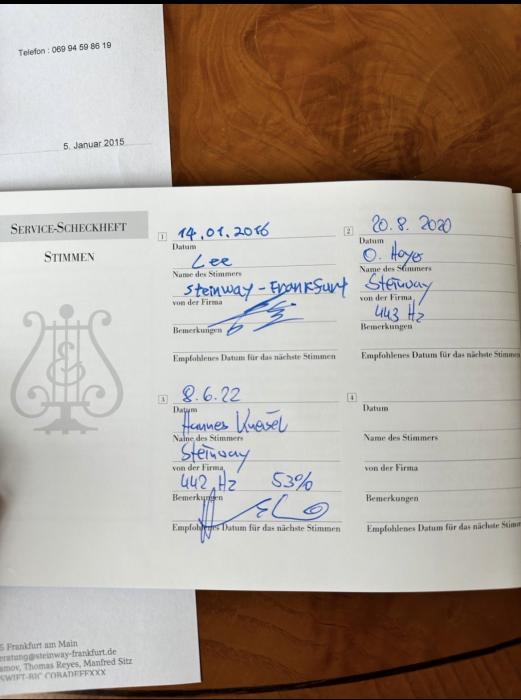 Telefon : 069 94 59 86 19
5. Januar 2015
SERVICE-SCHECKHEFT
STIMMEN
1
14.01.2016
Datum
Lee
Name des Stimmers
Steinway - Frankfurt
von der Firma
Bemerkungen
Empfohlenes Datum für das nächste Stimmen
2
20.8. 2020
Datum
O. Heyes
Name des Stimmers
Steinway
von der Firma
443 Hz
Bemerkungen
Empfohlenes Datum für das nächste Stimmen
3
8.6.22
Datum
Hannes
Name des Stimmers
Steinway
von der Firma
442 Hz 53%
Bemerkungen
Empfohlenes Datum für das nächste Stimmen
4
Datum
Name des Stimmers
von der Firma
Bemerkungen
Empfohlenes Datum für das nächste Stimm
5 Frankfurt am Main
eratung@steinway-frankfurt.de
amov, Thomas Reyes, Manfred Sitz
SWIFT-BIC COBADEFFXXX